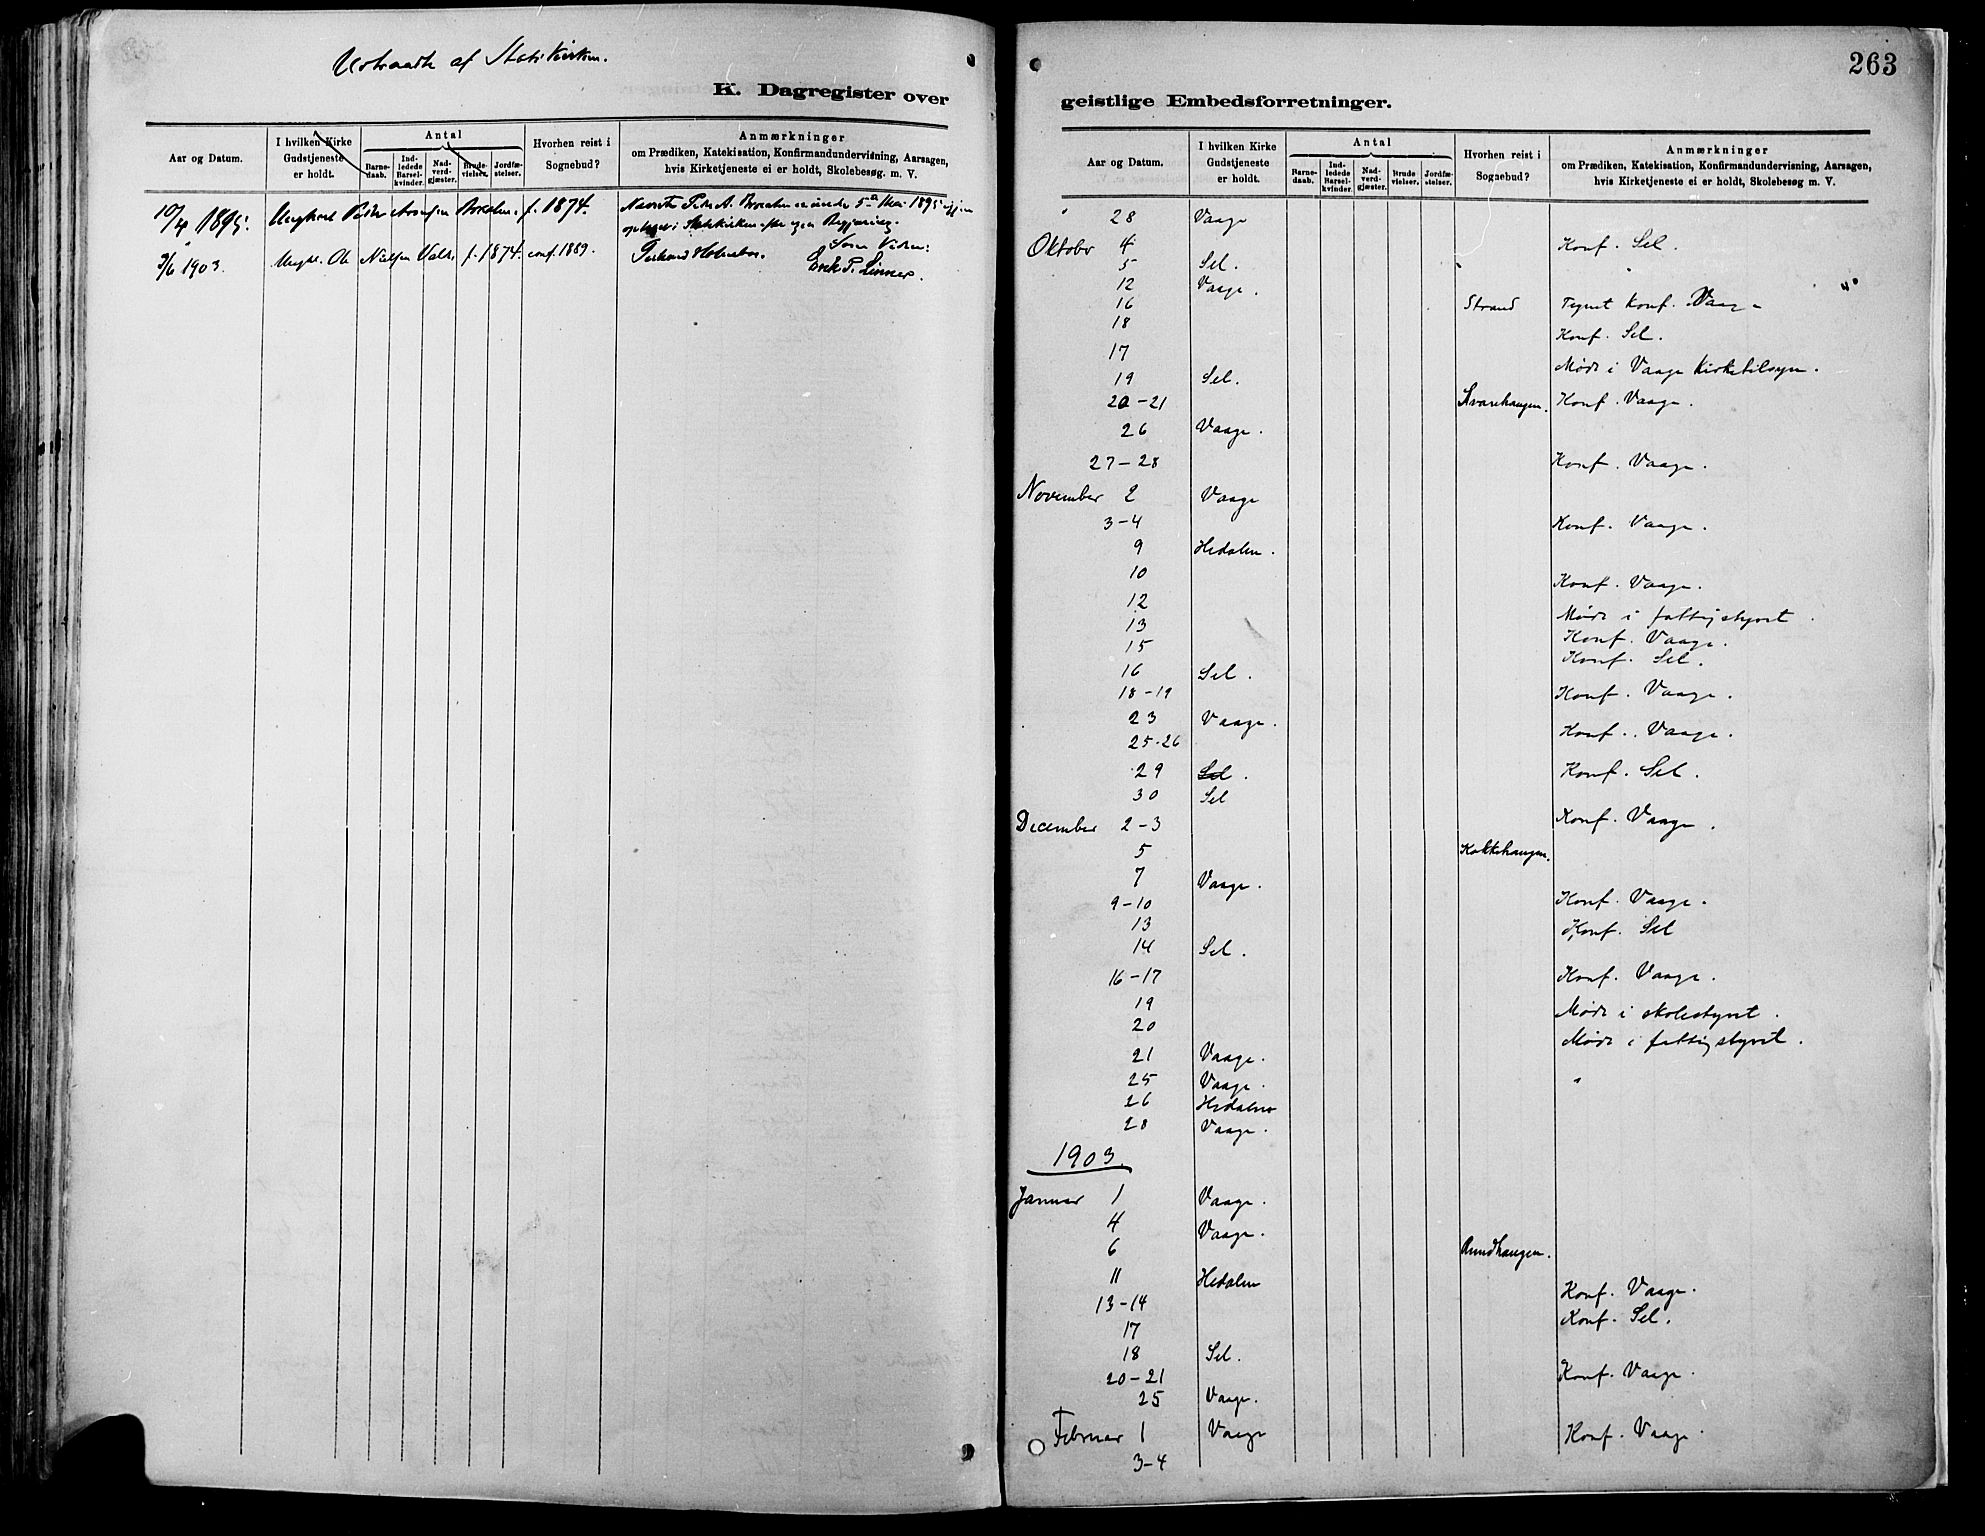 Udtraadte af Statskirken.
K. Dagregister over
Aar og Datum.
I hvilken Kirke
Gudstjeneste
er holdt.
Antal
Barne-
daab.
Ind-
ledede
Barsel-
kvinder.
Nad-
verd-
gjæster.
Brude-
vielser.
Jordfæ-
stelser.
Hvorhen reist i
Sognebud?
Anmærkninger
om Prædiken, Katekisation, Konfirmandundervisning, Aarsagen,
hvis Kirketjeneste ei er holdt, Skolebesøg. m. V.
10/4 1895. Ungkarl Peder f. 1874. Peder A. under 5te Mai 1895
optaget i Statskirken efter egen Begjæring.
1903. Ungk. Ole Nielsen f. 1874. conf. 1889.
263
geistlige Embedsforretninger.
Aar og Datum.
I hvilken Kirke
Gudstjeneste
er holdt.
Antal
Barne-
daab.
Ind-
ledede
Barsel-
kvinder.
Nad-
verd-
gjæster.
Brude
vielser.
Jordfæ-
stelser.
Hvorhen reist i
Sognebud?
Anmærkninger
om Prædiken, Katekisation, Konfirmandundervisning, Aarsagen,
hvis Kirketjeneste ei er holdt, Skolebesøg m. V.
" 28 Vaage
Oktober 4 Konf. Sel.
5 Sel.
12 Vaage.
16 Strand Tegnet Konf. Vaage
18 Konf. Sel.
17 Møde i Vaage Kirketilsyn.
19 Sel.
20-21 Kvarehaugen. Konf. Vaage.
26 Vaage.
27-28 Konf. Vaage.
November 2 Vaage
3-4 Konf. Vaage.
9 Hedalen.
10 Konf. Vaage.
12 Møde i fattigstyret.
13 Konf. Vaage.
15 Konf. Sel.
16 Sel.
18-19 Konf. Vaage.
23 Vaage.
25-26 Konf. Vaage.
29 Sel. Konf. Sel.
30 Sel
December 2-3 Konf. Vaage.
5 Kokkehaugen.
7 Vaage.
9-10 Konf. Vaage.
13 Konf. Sel
14 Sel.
16-17 Konf. Vaage.
19 Møde i skolestyret.
20 Møde i fattigstyret.
21 Vaage.
25 Vaage. "
26 Hedalen
28 Vaage.
1903.
Januar 1 Vaage.
4 Vaage.
6 Rundhaugen.
11 Hedalen
13-14 Konf. Vaage.
17 Konf. Sel.
18 Sel.
20-21 Konf. Vaage.
25 Vaage.
Februar 1 Vaage
3-4 Konf. Vaage.